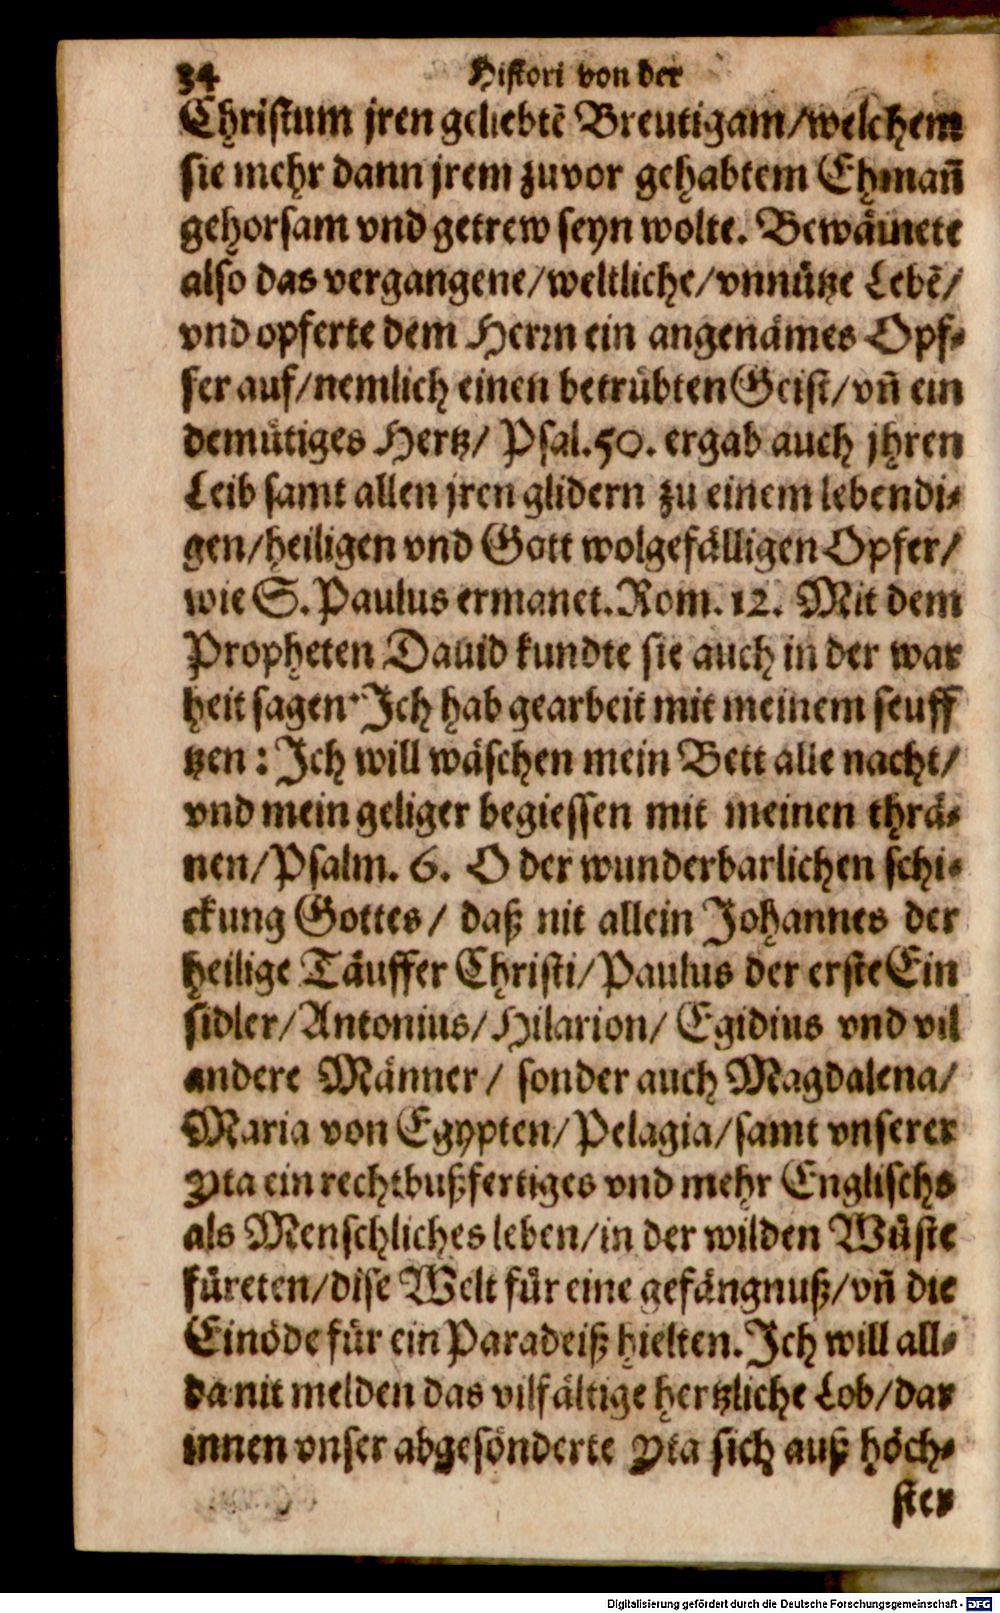 34 Histori von der
Christum jren geliebtē Breutigam/welchem
sie mehr dann jrem zuvor gehabtem Ehmañ
gehorsam vnd getrew seyn wolte. Bewäinete
also das vergangene/weltliche/vnnütze Lebē/
vnd opferte dem Herrn ein angenämes Opf-
fer auf/nemlich einen betrübten Geist/vñ ein
demütiges Hertz/ Psal.50. ergab auch jhren
Leib samt allen jren glidern zu einem lebendi-
gen/heiligen vnd Gott wolgefälligen Opfer/
wie S. Paulus ermanet. Rom. 12. Mit dem
Propheten Dauid kundte sie auch in der war
heit sagen: Ich hab gearbeit mit meinem seuff
tzen: Ich will wäschen mein Bett alle nacht/
vnd mein geliger begiessen mit meinen thrä-
nen/Psalm. 6. O der wunderbarlichen schi-
ckung Gottes/ daß nit allein Johannes der
heilige Täuffer Christi/Paulus der erste Ein
sidler/Antonius/Hilarion/ Egidius vnd vil
andere Männer/ sonder auch Magdalena/
Maria von Egypten/Pelagia/samt vnserer
Yta ein rechtbußfertiges vnd mehr Englischs
als Menschliches leben/in der wilden Wüste
füreten/dise Welt für eine gefängnuß/vñ die
Einöde für ein Paradeiß hielten. Ich will all-
da nit melden das vilfältige hertzliche Lob/dar
innen vnser abgesönderte Yta sich auß höch-
ster
Digitalisierung gefördert durch die Deutsche Forschungsgemeinschaft - DFG